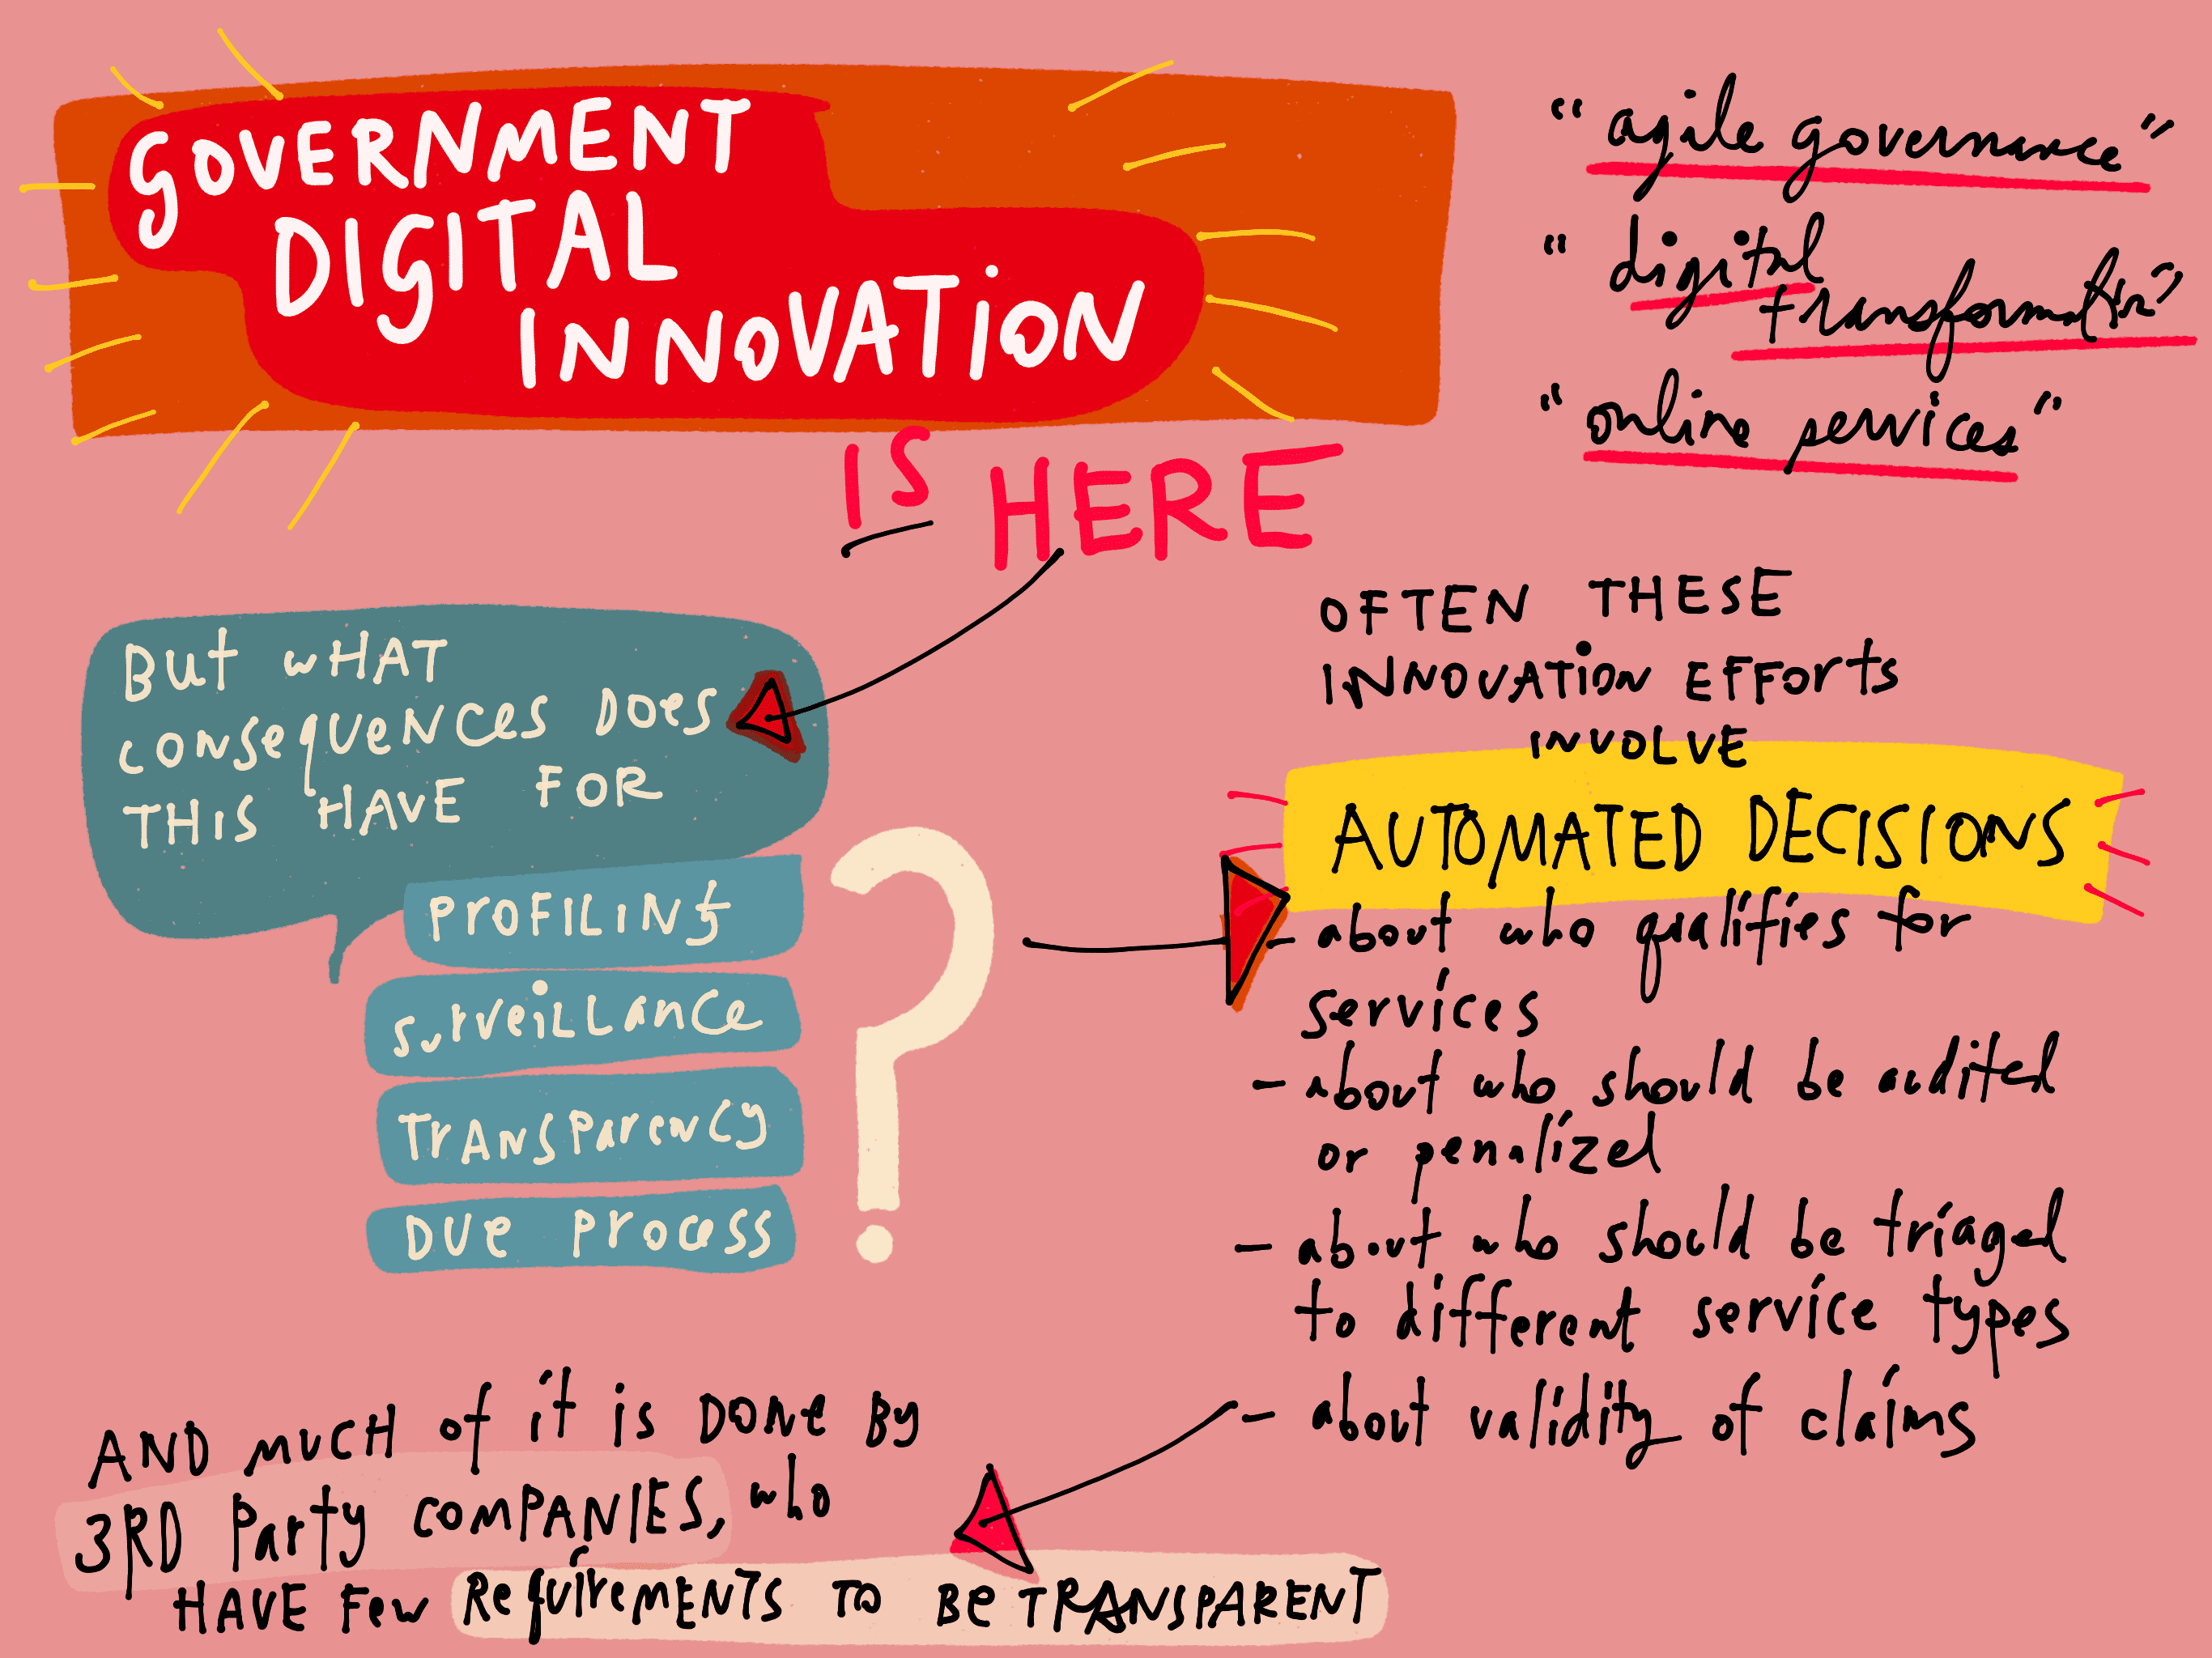 GOVERNMENT
DIGITAL
INNOVATION
IS HERE
"agile governance"
"digital
transformation"
"online services"
BUT WHAT
CONSEQUENCES DOES
THIS HAVE FOR
PROFILING
SURVEILLANCE
TRANSPARENCY
DUE PROCESS
?
OFTEN THESE
INNOVATION EFFORTS
INVOLVE
AUTOMATED DECISIONS
- about who qualifies for
services
- about who should be audited
or penalized
- about who should be triaged
to different service types
- about validity of claims
AND MUCH of it is DONE BY
3RD Party COMPANIES, who
HAVE FEW REQUIREMENTS TO BE TRANSPARENT